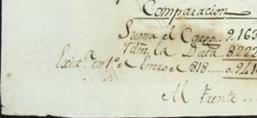 Comparacion
Suma el Cargo.. 2.163
Ydm. la Data 8.222
Exist.ª en 1º el Enero el 818..... 0.241
Al frente..